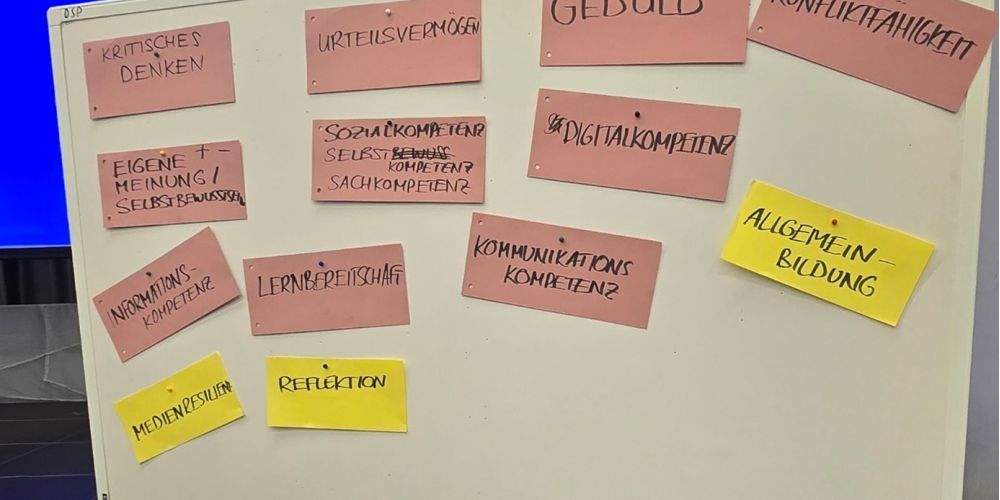 DSP
KRITISCHES
DENKEN
URTEILSVERMÖGEN
GEDULD
KONFLIKTFÄHIGKEIT
EIGENE + -
MEINUNG /
SELBSTBEWUSSTSEIN
SOZIALKOMPETENZ
SELBSTBEWUSS
KOMPETENZ
SACHKOMPETENZ
DIGITALKOMPETENZ
ALLGEMEIN-
BILDUNG
INFORMATIONS-
KOMPETENZ
LERNBEREITSCHAFT
KOMMUNIKATIONS
KOMPETENZ
MEDIENRESILIENZ
REFLEKTION